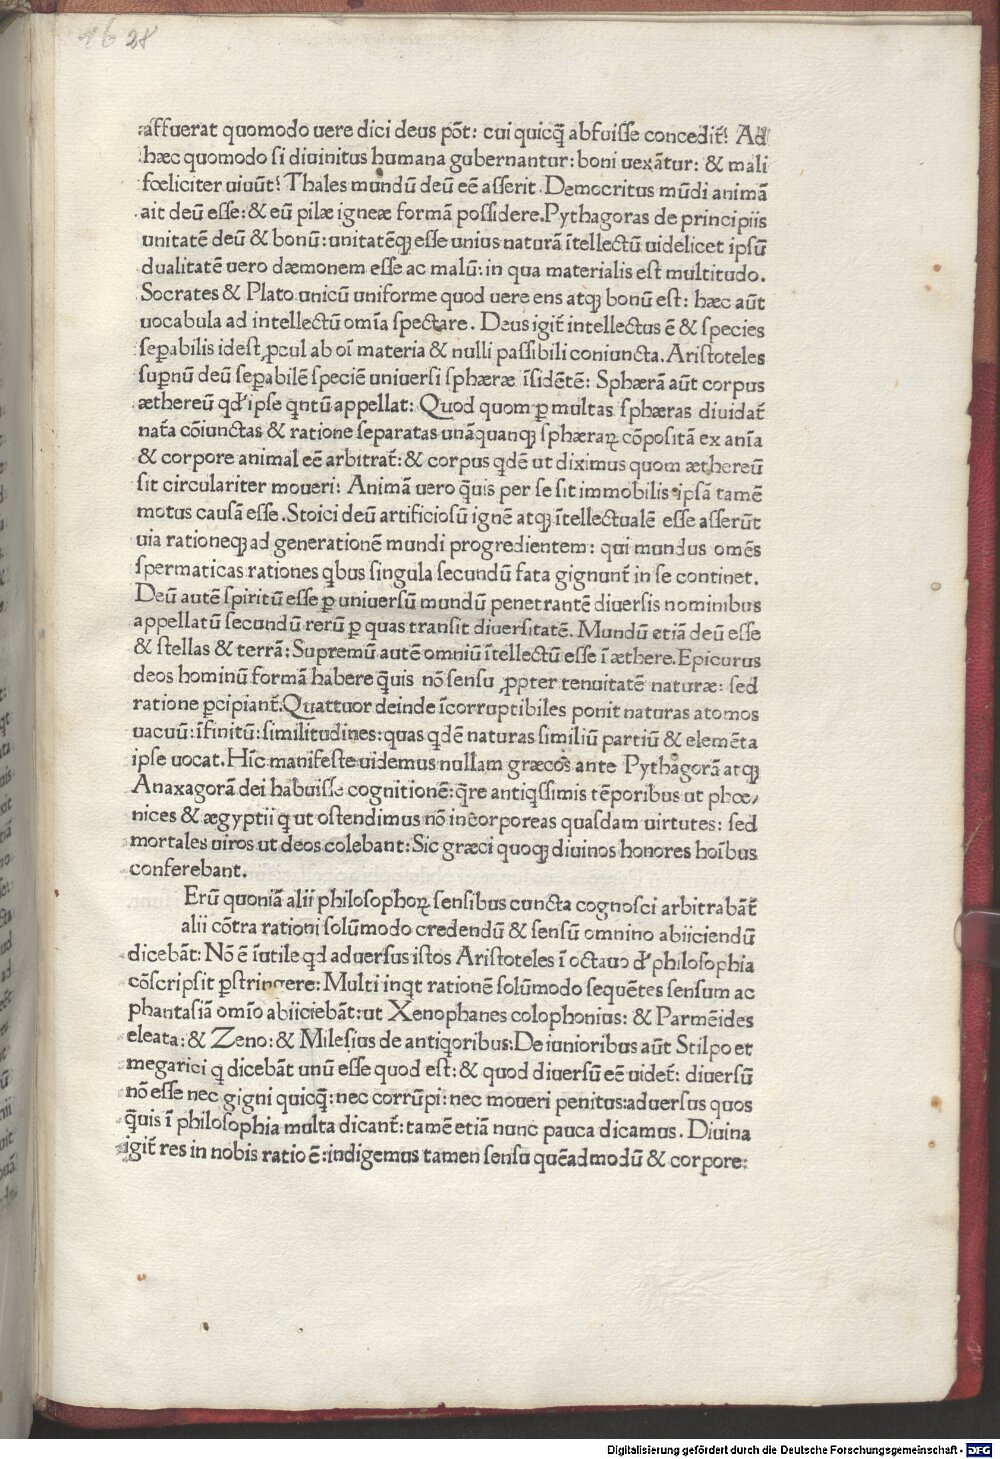 16 28
affuerat quomodo uere dici deus põt: cui quicq̃ abfuisse concedit̃? Ad
hæc quomodo si diuinitus humana gubernantur: boni uexãtur: & mali
fœliciter uiuũt? Thales mundũ deũ eẽ asserit. Democritus mũdi animã
ait deũ esse: & eũ pilæ igneæ formã possidere. Pythagoras de principiis
unitatẽ deũ & bonũ: unitatẽqꝫ esse unius naturã ĩtellectũ uidelicet ipsũ
dualitatẽ uero dæmonem esse ac malũ: in qua materialis est multitudo.
Socrates & Plato unicũ uniforme quod uere ens atqꝫ bonũ est: hæc aũt
uocabula ad intellectũ omĩa spectare. Deus igit̃ intellectus ẽ & species
seꝑabilis idest ꝓcul ab oĩ materia & nulli passibili coniuncta. Aristoteles
suꝑnũ deũ seꝑabilẽ speciẽ uniuersi sphæræ ĩsidẽtẽ: Sphærã aũt corpus
æthereũ qđ ipse qntũ appellat: Quod quom ꝑ multas sphæras diuidat̃
nat̃a cõiunctas & ratione separatas unãquanqꝫ sphæraꝝ cõpositã ex anĩa
& corpore animal eẽ arbitrat̃: & corpus qdẽ ut diximus quom æthereũ
sit circulariter moueri: Animã uero q̃uis per se sit immobilis ipsã tamẽ
motus causã esse. Stoici deũ artificiosũ ignẽ atqꝫ ĩtellectualẽ esse asserũt
uia rationeqꝫ ad generationẽ mundi progredientem: qui mundus omẽs
spermaticas rationes qbus singula secundũ fata gignunt̃ in se continet.
Deũ autẽ spiritũ esse ꝑ uniuersũ mundũ penetrantẽ diuersis nominibus
appellatũ secundũ rerũ ꝑ quas transit diuersitatẽ. Mundũ etiã deũ esse
& stellas & terrã: Supremũ autẽ omniũ ĩtellectũ esse ĩ æthere. Epicurus
deos hominũ formã habere q̃uis nõ sensu ꝓpter tenuitatẽ naturæ: sed
ratione ꝑcipiant̃. Quattuor deinde ĩcorruptibiles ponit naturas atomos
uacuũ: ĩfinitũ: similitudines: quas qdẽ naturas similiũ partiũ & elemẽta
ipse uocat. Hĩc manifeste uidemus nullam græcos ante Pythagorã atqꝫ
Anaxagorã dei habuisse cognitionẽ: q̃re antiqssimis tẽporibus ut phœ/
nices & ægyptii q ut ostendimus nõ incorporeas quasdam uirtutes: sed
mortales uiros ut deos colebant: Sic græci quoqꝫ diuinos honores hoĩbus
conferebant.
Erũ quoniã alii philosophoꝝ sensibus cuncta cognosci arbitrabãt̃
alii cõtra rationi solũmodo credendũ & sensũ omnino abiiciendũ
dicebãt: Nõ ẽ ĩutile qđ aduersus istos Aristoteles ĩ octauo đ philosophia
cõscripsit ꝑstringere: Multi inqt rationẽ solũmodo sequẽtes sensum ac
phantasiã omĩo abiiciebãt: ut Xenophanes colophonius: & Parmẽides
eleata: & Zeno: & Milesius de antiqoribus: De iunioribus aũt Stilpo et
megarici q dicebãt unũ esse quod est: & quod diuersũ eẽ uidet̃: diuersũ
nõ esse nec gigni quicq̃: nec corrũpi: nec moueri penitus: aduersus quos
q̃uis ĩ philosophia multa dicant̃: tamẽ etiã nunc pauca dicamus. Diuina
igit̃ res in nobis ratio ẽ: indigemus tamen sensu quẽadmodũ & corpore:
Digitalisierung gefördert durch die Deutsche Forschungsgemeinschaft - DFG